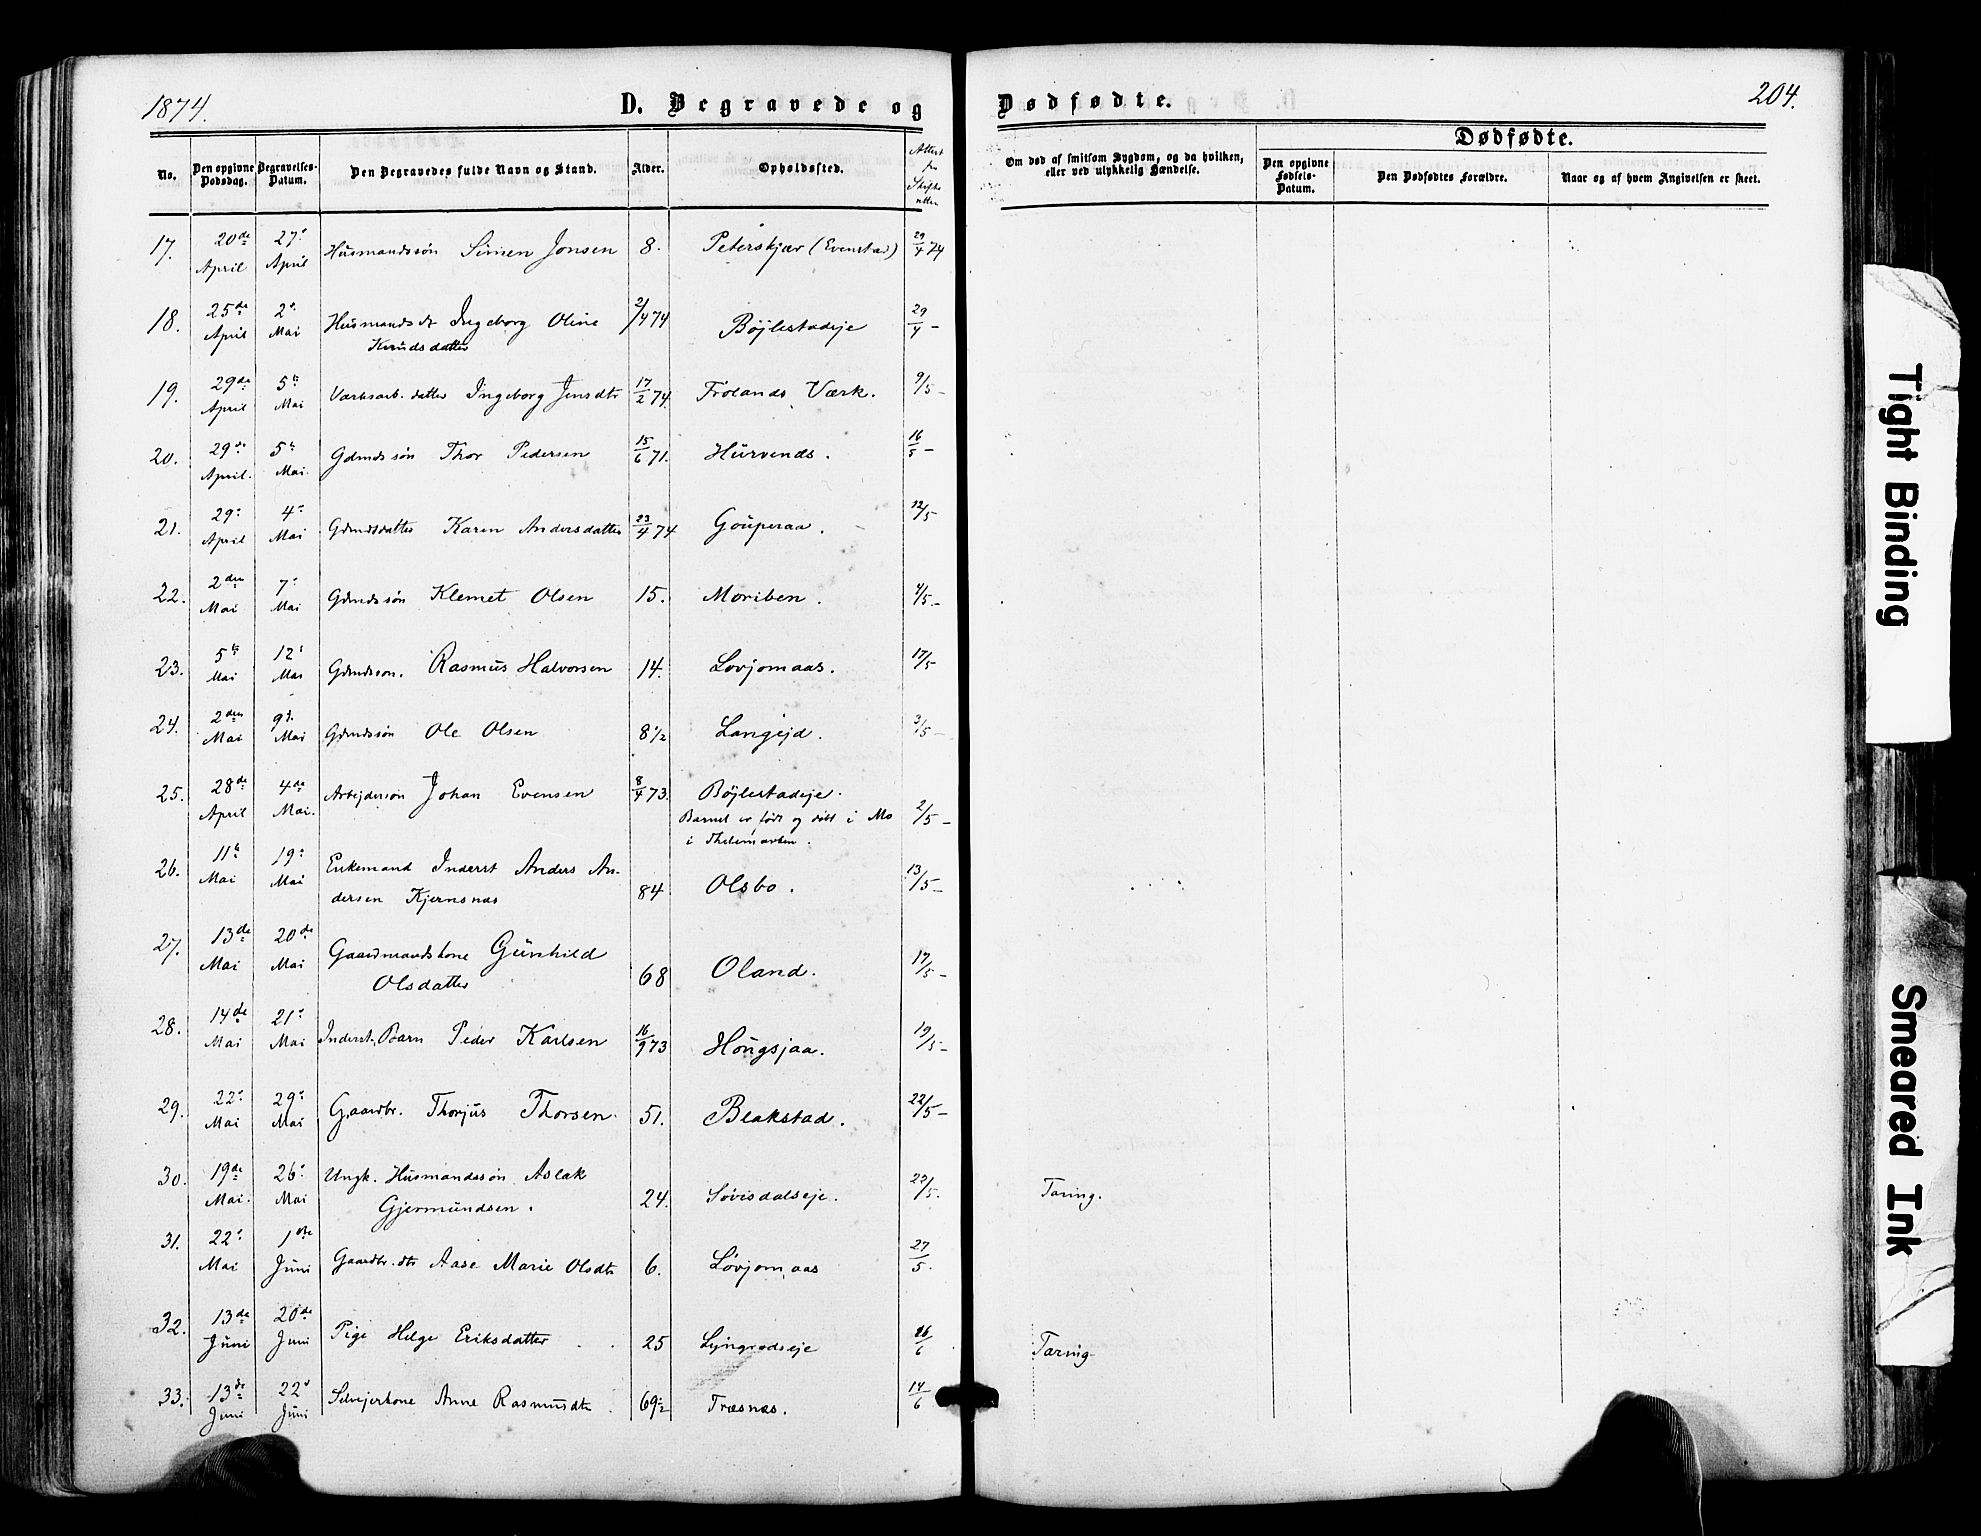 1874.
D. Begravede og Dødfødte.
204.
No.
Den opgivne Dødsdag.
Begravelses-Datum.
Den Begravedes fulde Navn og Stand.
Alder.
Opholdssted.
Attest fra Skifteretten
Om død af smitsom Sygdom, og da hvilken, eller ved ulykkelig Hændelse.
Dødfødte.
Den opgivne Fødsels-Datum.
Den Dødfødtes Forældre.
Naar og af hvem Angivelsen er skeet.
17. 20de April 27' April Husmandssøn Simen Jonsen 8. Peterskjær (Evenstad) 29/4 74
18. 25de April 2' Mai Husmandsdt Ingeborg Oline 2/4 74 Bøjlestadeje 29/4 –
Knudsdatter
19. 29de April 5te Mai Værksarb. datter Ingeborg Jensdtr 17/2 74. Frolands Værk. 9/5 –
20. 29de April. 5te Mai. Gdmdssøn Thor Pedersen 15/6 71. Hurvends. 16/5 –
21. 29' April 4' Mai Gdmdsdatter Karen Andersdatter 23/4 74 Gouperaa. 12/5
22. 2den Mai 7' Mai Gdmdssøn Klemet Olsen 15. Moriben. 4/5 –
23. 5te Mai 12' Mai Gdmdsson. Rasmus Halvorsen 14. Lovjomaas. 17/5
24. 2den Mai 9d. Mai Gdmdssøn Ole Olsen 8 1/2 Langejd. 3/5 –
25. 28de April 4de Mai. Arbejdersøn Johan Evensen 8/4 73. Bøjlestadeje. 2/5 –
Barnet er født og døbt i Mo
i Thelemarken.
26. 11te Mai 19' Mai Enkemand Inderst Anders An-
dersen Kjernsnæs 84 Olsbo. 13/5 –
27. 13de Mai 20de Mai Gaardmandskone Gunhild
Olsdatter 68 Oland. 17/5 –
28. 14de Mai 21' Mai Inderst. Barn Peder Karlsen 16/9 73 Hougsjaa. 19/5 –
29. 22' Mai 29' Mai Gaardbr. Thorjus Thorsen. 51. Blakstad. 22/5 –
30. 19de Mai. 26' Mai Ungk. Husmandssøn Aslak
Gjermundsen. 24. Søvisdalseje. 23/5. Tæring.
31. 22' Mai 1ste Juni Gaardbr. dtr Aase Marie Olsdtr 6. Løvjomaas 27/5.
32. 13de Juni 20de Juni Pige Helge Eriksdatter 25 Lyngrodseje 16/6 Tæring
33. 13de Juni 22' Juni Selvejerkone Anne Rasmusdtr 69 1/2 Træsnæs. 14/6
Tight Binding
Smeared Ink